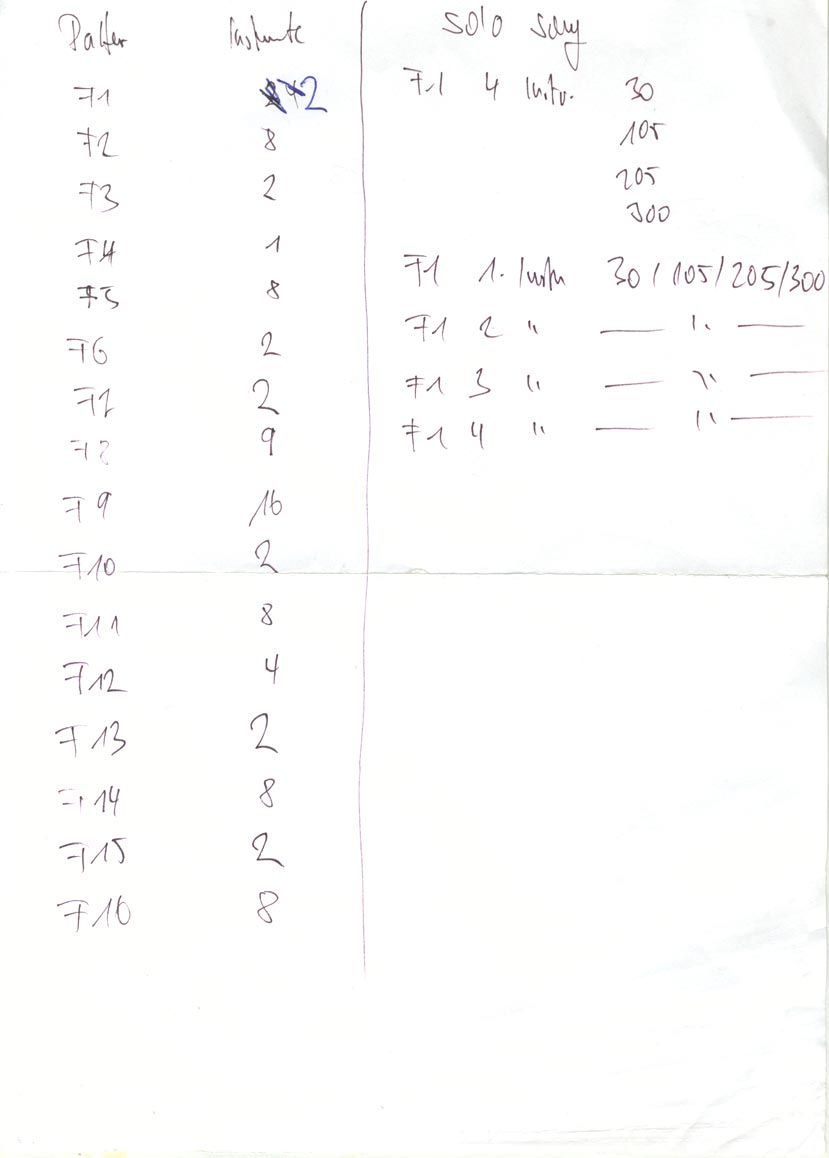 Patter Instrumte
F1 2
F2 8
F3 2
F4 1
F5 8
F6 2
F7 2
F8 9
F9 16
F10 2
F11 8
F12 4
F13 2
F14 8
F15 2
F16 8
Solo Song
F1 4 Instr. 30
105
205
300
F1 1. Instr 30/105/205/300
F1 2 " — " —
F1 3 " — " —
F1 4 " — " —